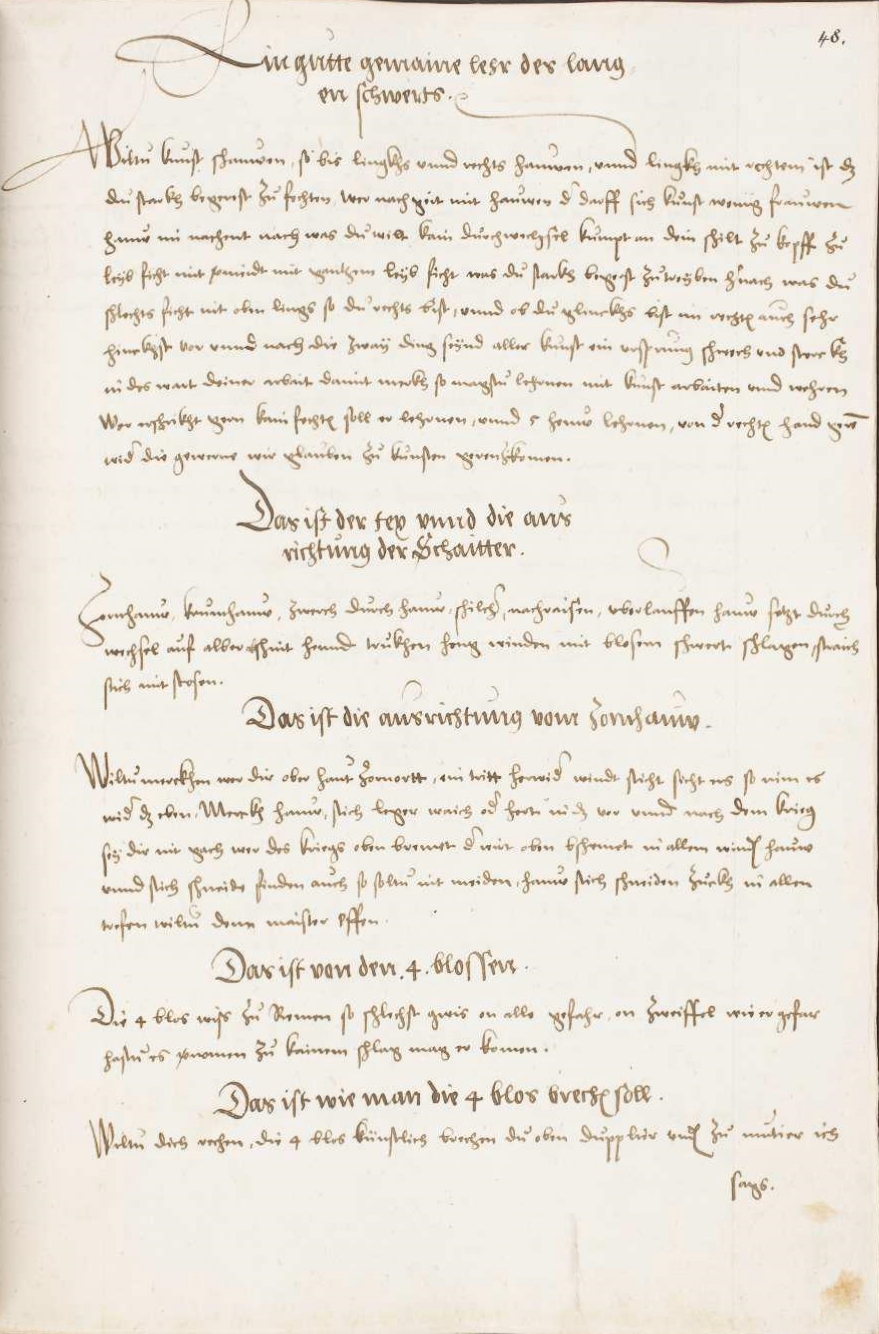 48.
Ein gutte gemaine lehr des lang
en schwerts.
Wiltu kunst schauwen, so bis lingkhs vnnd rechts hauwen, vnnd lingkhs mit rechtem ist dz
du starkh begerest zu fechten, wer nach geet mit hauwen d darff sich kunst wenig frauwen
hauw im nachent nach was du wilt kain durchwechsel kumpt an dein schilt zu kopff zu
leyb ficht nit vermeidt mit gantzem leyb ficht was du starkh begerst zu treyben h nach was du
schlechts ficht nit oben lings so du rechts bist, vnnd ob du glinckhs bist im rechten auch sehr
hinckhst vor vnnd nach die zway ding seynd aller kunst ein vrsprung schwech vnd sterckh
in des wart deiner arbait damit merkh so magstu lehrnen mit kunst arbaiten vnd wehren
Wer erschrikht gern kain fechten soll er lehrnen, vnnd 5 heuw lehrnen, von d rechten hand
wid die gewerne wir glauben zu kunsten gerentzkomen.
Das ist der tex vnnd die aus
richtung der Schaitter.
Zornhauw, krumhauw, zwerch durch hauw, schilch, nachraisen, vberlauffen hauw setzt durch
wechsel auf alber schnit hennd trukhen heng winden mit blosem schwert schlagen, straich
stich mit stosen.
Das ist die ausrichtung vom Zornhauw.
Wiltu merckhen wer dir ober haut Zornortt, ein tritt herwid windt sticht secht ers so nim es
wid dz eben, Merckh hauw, stich leger waich od hert in dz vor vnnd nach dem krieg
sey dir nit gach wer des kriegs oben bremet d wirt oben bschemet in allem winden hauw
vnnd stich schneide finden auch so soltu nit meiden, hauw stich schneiden zuckh in allen
trefen wiltu denn maister effen.
Das ist von den .4. blossen.
Die 4 blos wiss zu Remen so schlechst gwis on alle gefahr, on zweiffel wie er gefar
hastu es vernumen zu kainem schlag mag er komen.
Das ist wie man die 4 blos brechen soll.
Wiltu dich rechen, die 4 blos künstlich brechen du oben dupplier vnden zu mutier ich
sags.